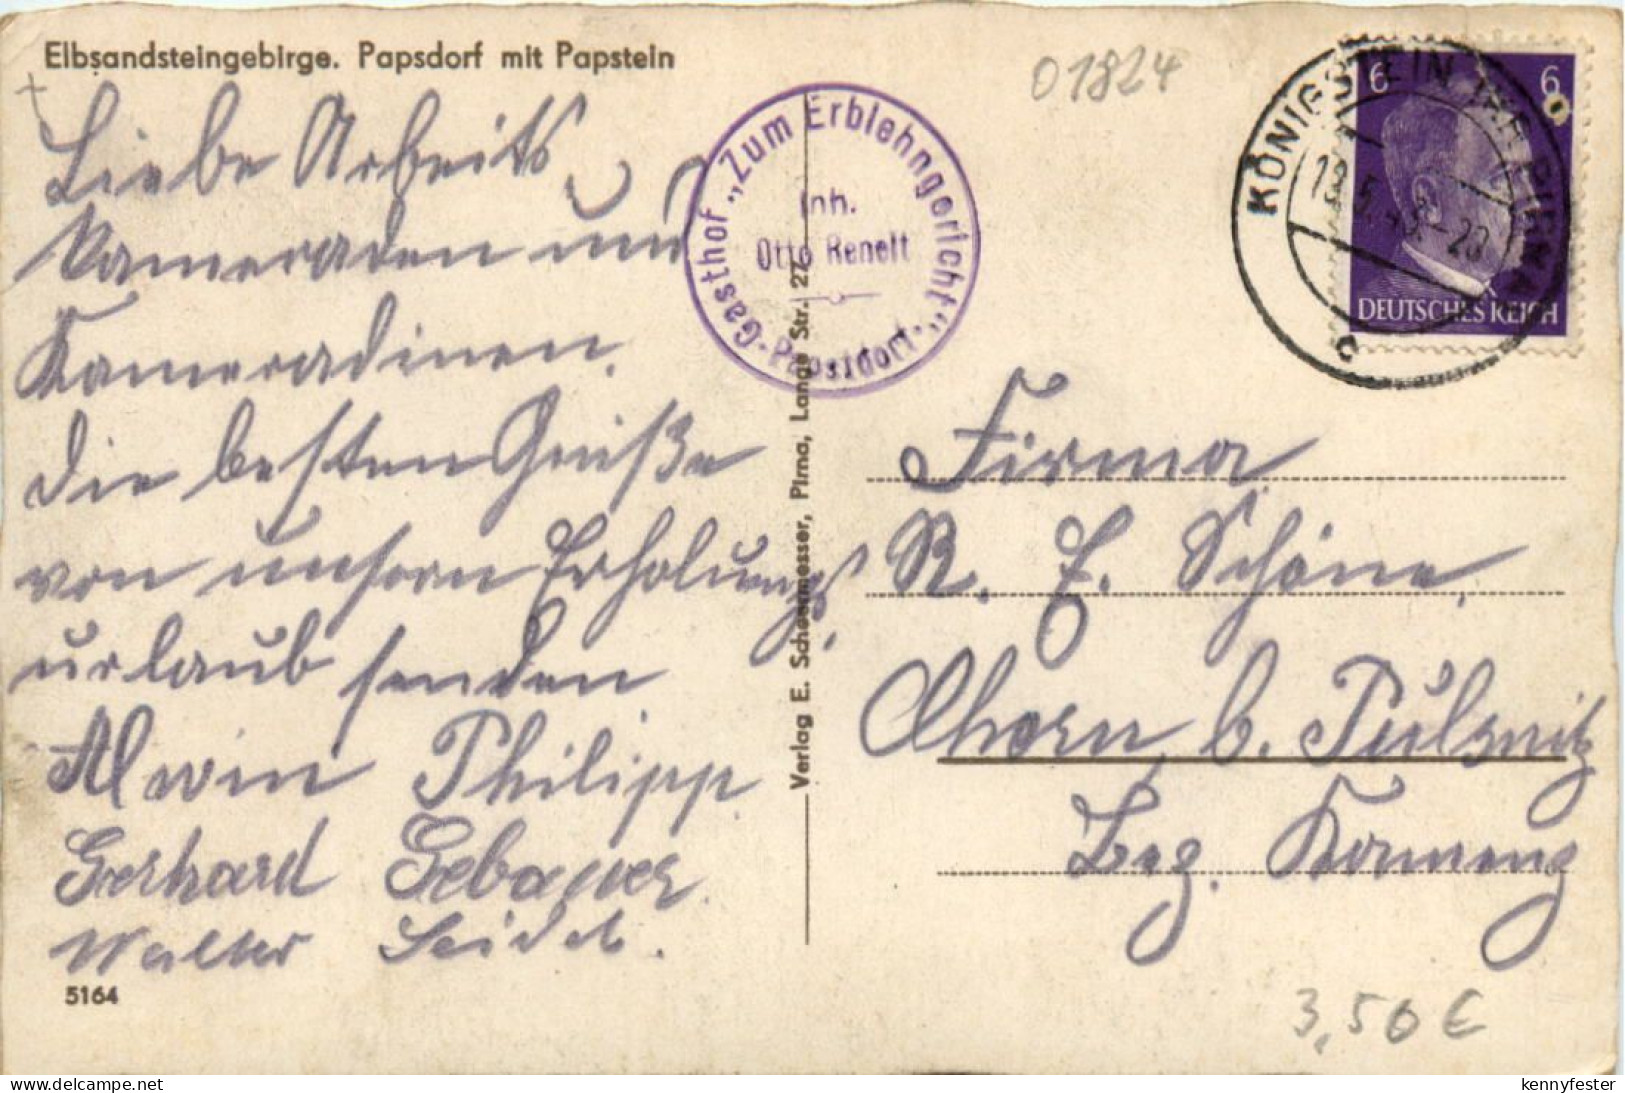 Elbsandsteingebirge. Papsdorf mit Papstein
01824
Liebe Arbeits
Kameraden und
Kameradinen.
die besten Grüße
von unsern Erholungs
urlaub senden
Alwin Philipp
Gerhard Gebauer
Walter Seidel.
5164
Gasthof „Zum Erblehngericht“
Inh.
Otto Renelt
·Papstdorf·
Verlag E. Schoenmesser, Pirna, Lange Str. 27
KÖNIGSTEIN PIRNA
-20
c
6 6
DEUTSCHES REICH
Firma
R. F. Schöne,
Ohorn b. Pulsnitz
Bez. Kamenz
3,50 €
www.delcampe.net
kennyfester